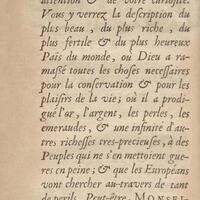 attention & de votre curiosité.
Vous y verrez la description du
plus beau, du plus riche, du
plus fertile & du plus heureux
Païs du monde, où Dieu a ra-
massé toutes les choses necessaires
pour la conservation & pour les
plaisirs de la vie; où il a prodi-
gué l'or, l'argent, les perles, les
emeraudes, & une infinité d'au-
tres richesses tres-precieuses, à des
Peuples qui ne s'en mettoient gue-
res en peine; & que les Européans
vont chercher au-travers de tant
de perils. Peut-être, MONSEI-